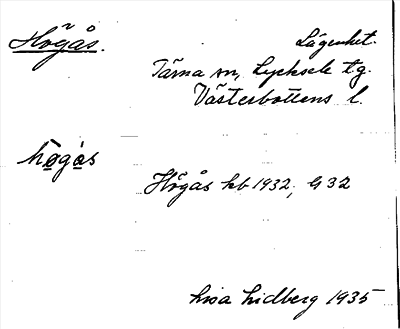 Högås. Lägenhet.
Tärna sn, Lycksele tg.
Västerbottens l.
högås
Högås kb 1932, G 32
Lisa Lidberg 1935